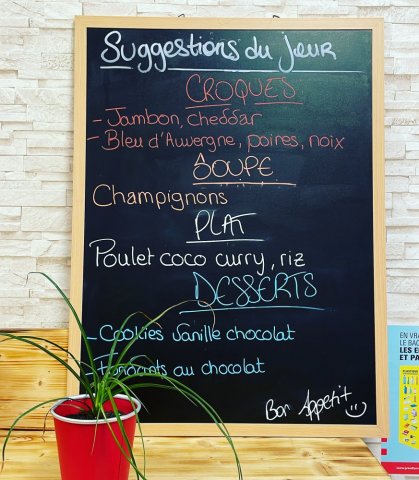 Suggestions du jour
CROQUES
- Jambon, cheddar
- Bleu d'Auvergne, poires, noix
SOUPE
Champignons
PLAT
Poulet coco curry, riz
DESSERTS
- Cookies vanille chocolat
- Fondants au chocolat
Bon Appetit
EN VRA
LE BAC
LES E
ET PA